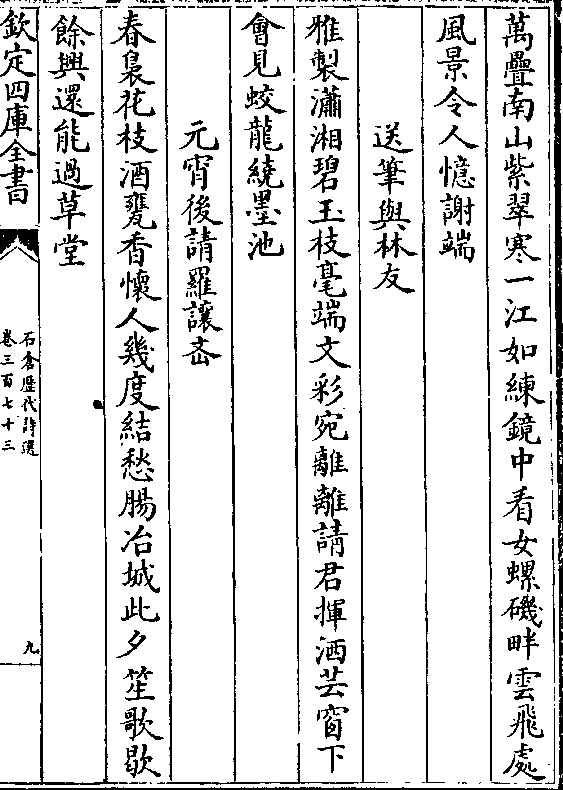 萬疊南山紫翠寒一江如練鏡中看女螺磯畔雲飛處
風景令人憶謝端
送筆與林友
雅製瀟湘碧玉枝毫端文彩宛離離請君揮洒芸窗下
會見蛟龍繞墨池
元宵後請羅讓
春裊花枝酒甕香懷人幾度結愁腸冶城此夕笙歌歇
餘興還能過草堂
欽定四庫全書
石倉歷代詩選
卷三百七十三
九